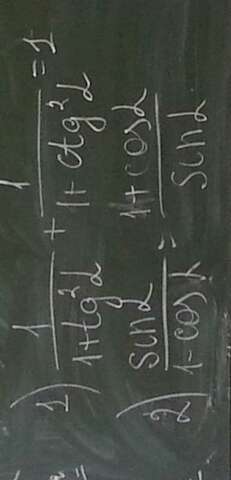 1) 1/(1+tg²α) + 1/(1+ctg²α) = 1
2) sinα/(1-cosα) = (1+cosα)/sinα